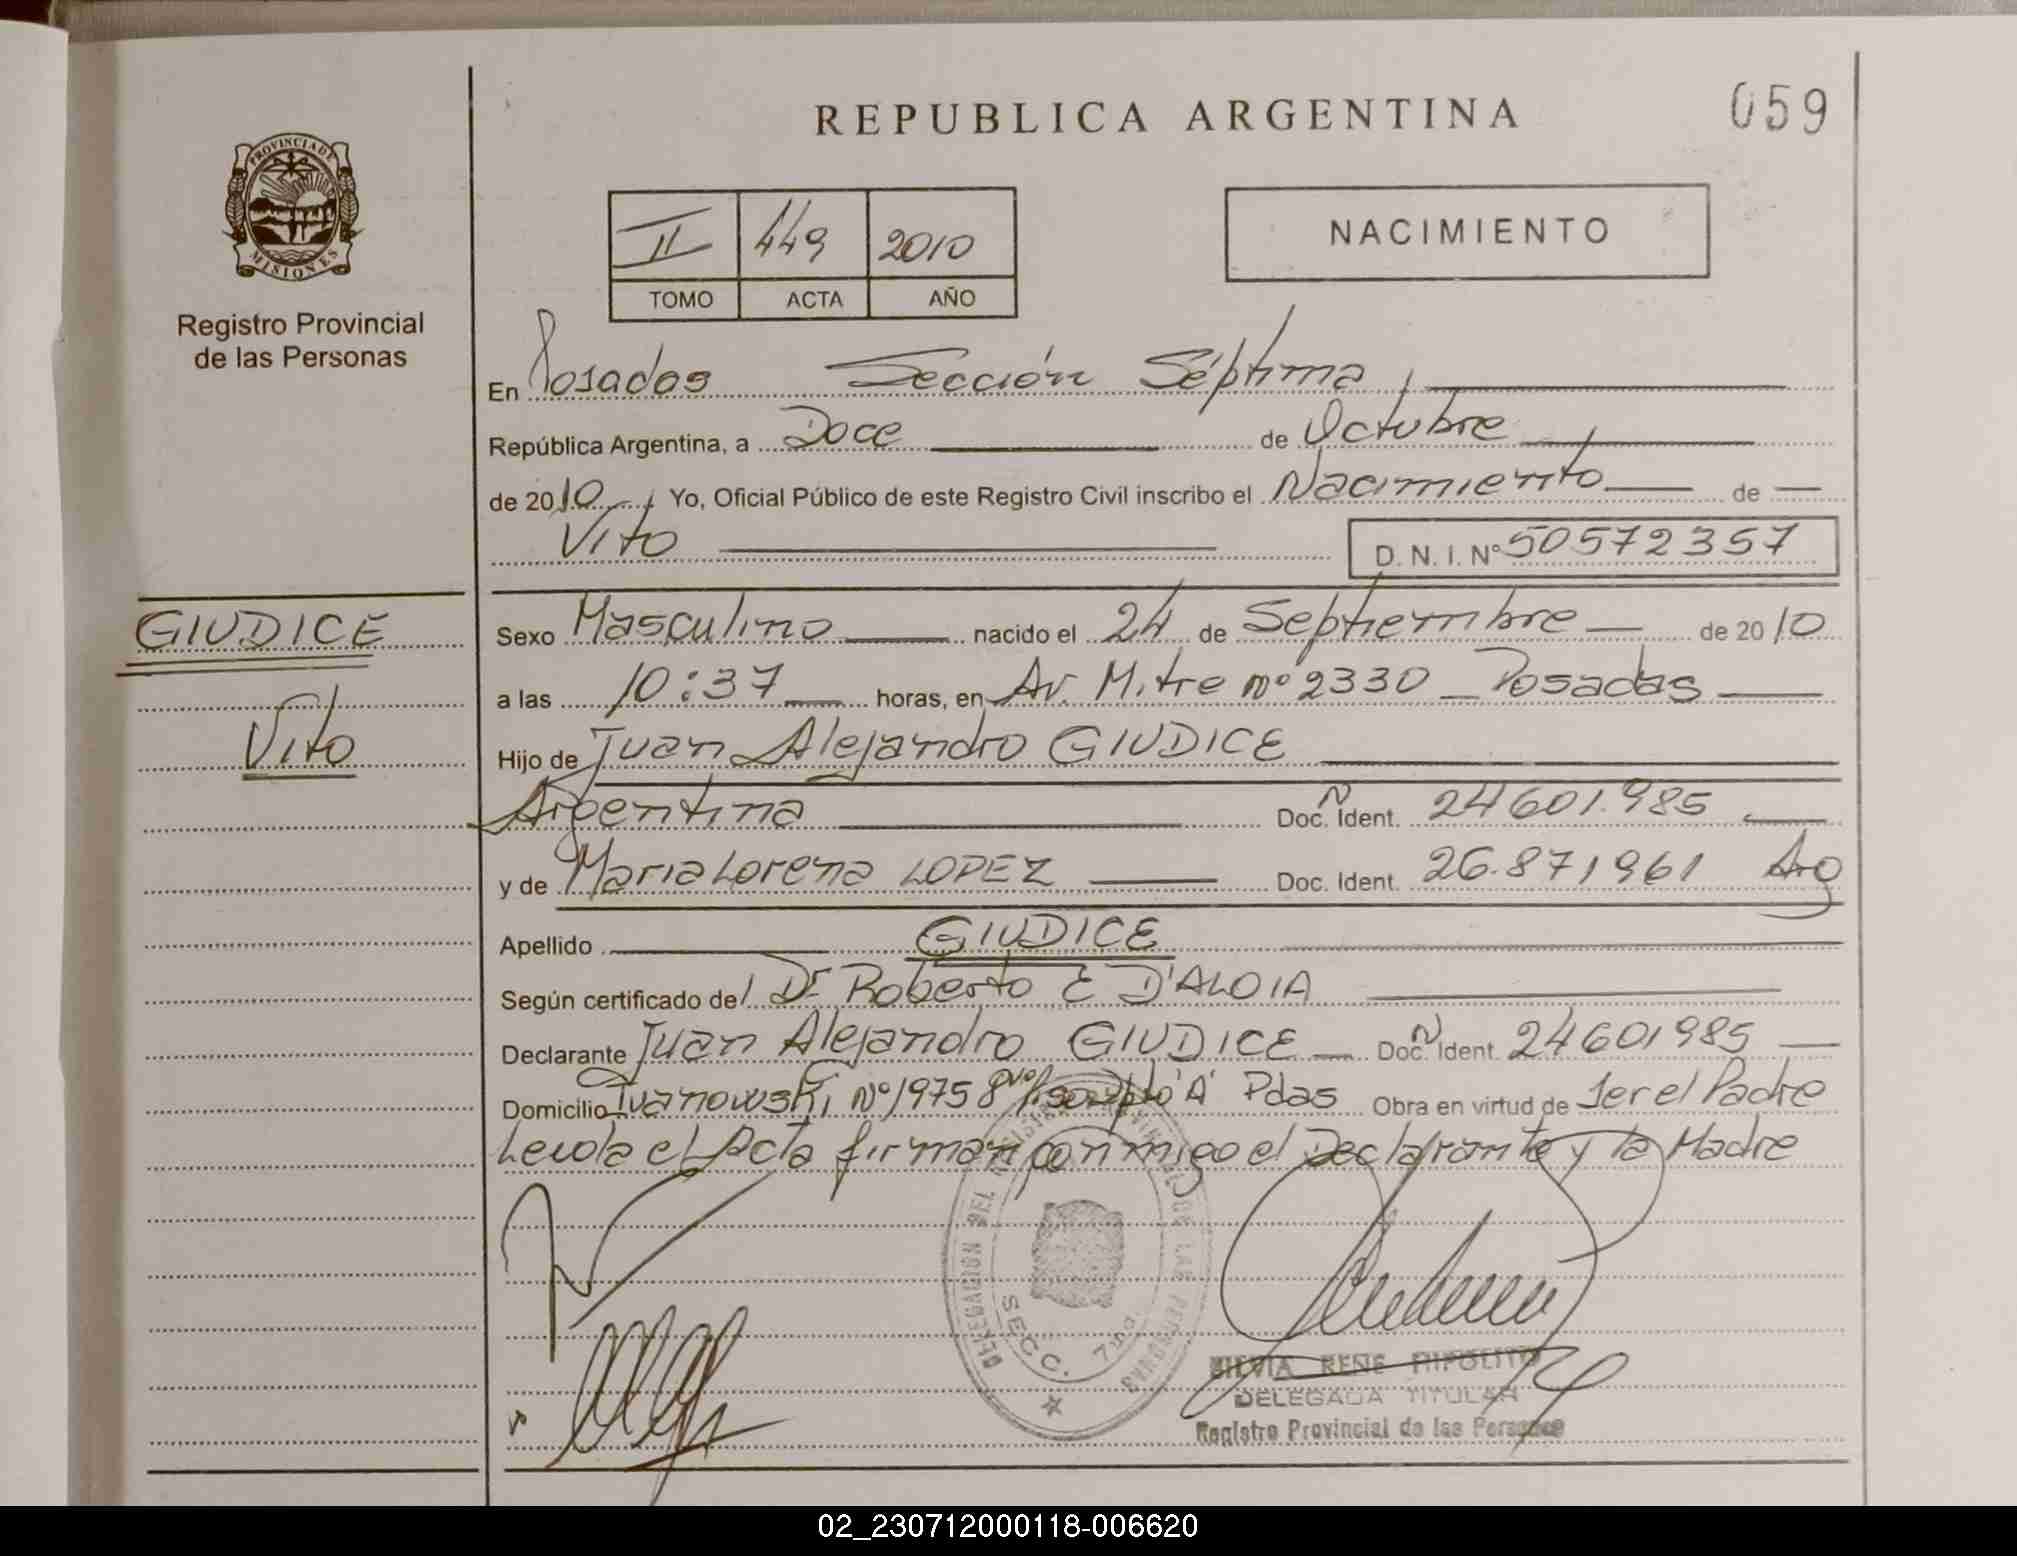 REPUBLICA ARGENTINA
059
PROVINCIA DE
MISIONES
Registro Provincial
de las Personas
II 449 2010
TOMO ACTA AÑO
NACIMIENTO
En Posadas Sección Séptima,
República Argentina, a Doce de Octubre
de 2010, Yo, Oficial Público de este Registro Civil inscribo el Nacimiento de
Vito D. N. I. Nº 50572357
GIUDICE
Vito
Sexo Masculino nacido el 24 de Septiembre de 2010
a las 10:37 horas, en Av. Mitre nº 2330 Posadas
Hijo de Juan Alejandro GIUDICE
Argentina Doc. N Ident. 24601.985
y de Maria Lorena LOPEZ Doc. Ident. 26.871961 Arg
Apellido GIUDICE
Según certificado del Dr Roberto E D'ALOIA
Declarante Juan Alejandro GIUDICE Doc. N Ident. 24601985
Domicilio Ivanowski Nº 1975 8º Dpto 'A' Pdas Obra en virtud de ser el Padre
Leida el Acta firman conmigo el Declarante y la Madre
DELEGACION DEL REGISTRO PROVINCIAL DE LAS PERSONAS
SECC. 7ma.
SILVIA RENE HIPOLITO
DELEGADA TITULAR
Registro Provincial de las Personas
02_230712000118-006620